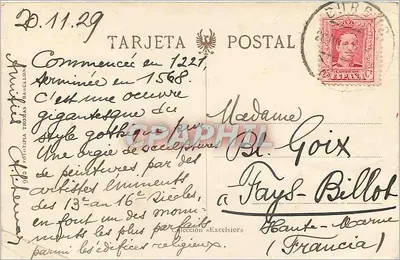 20.11.29
TARJETA POSTAL
BURGOS
ESPAÑA
Commencée en 1221,
terminée en 1568.
C'est une oeuvre
gigantesque du
style gothique pur
Une orgie de sculptures
de peintures, par des
artistes éminents
des 13e au 16e siècles,
en font un des monu-
ments les plus parfaits
parmi les édifices religieux.
Amitiés
Madame
Bl. Goix
à Fays-Billot
Haute-Marne
(Francia)
Colección «Excelsior»
DELCAMPE